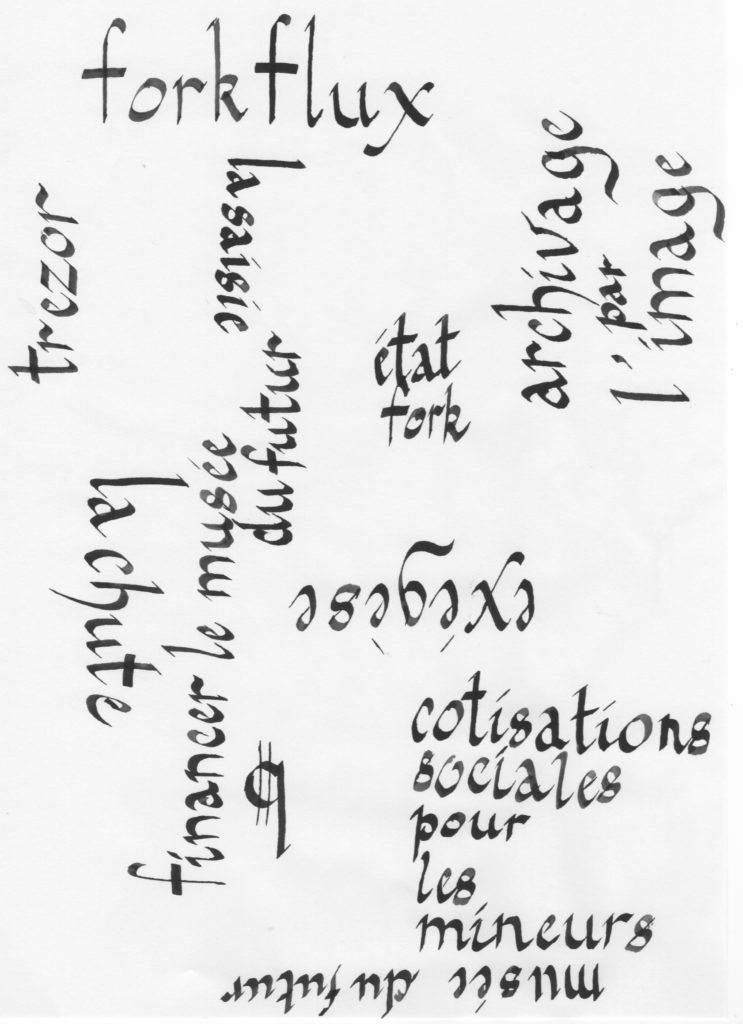 fork flux
trezor
la saisie
du futur
archivage
par
l'image
état
fork
la chute
financer le musée
exégèse
cotisations
sociales
pour
les
mineurs
musée du futur